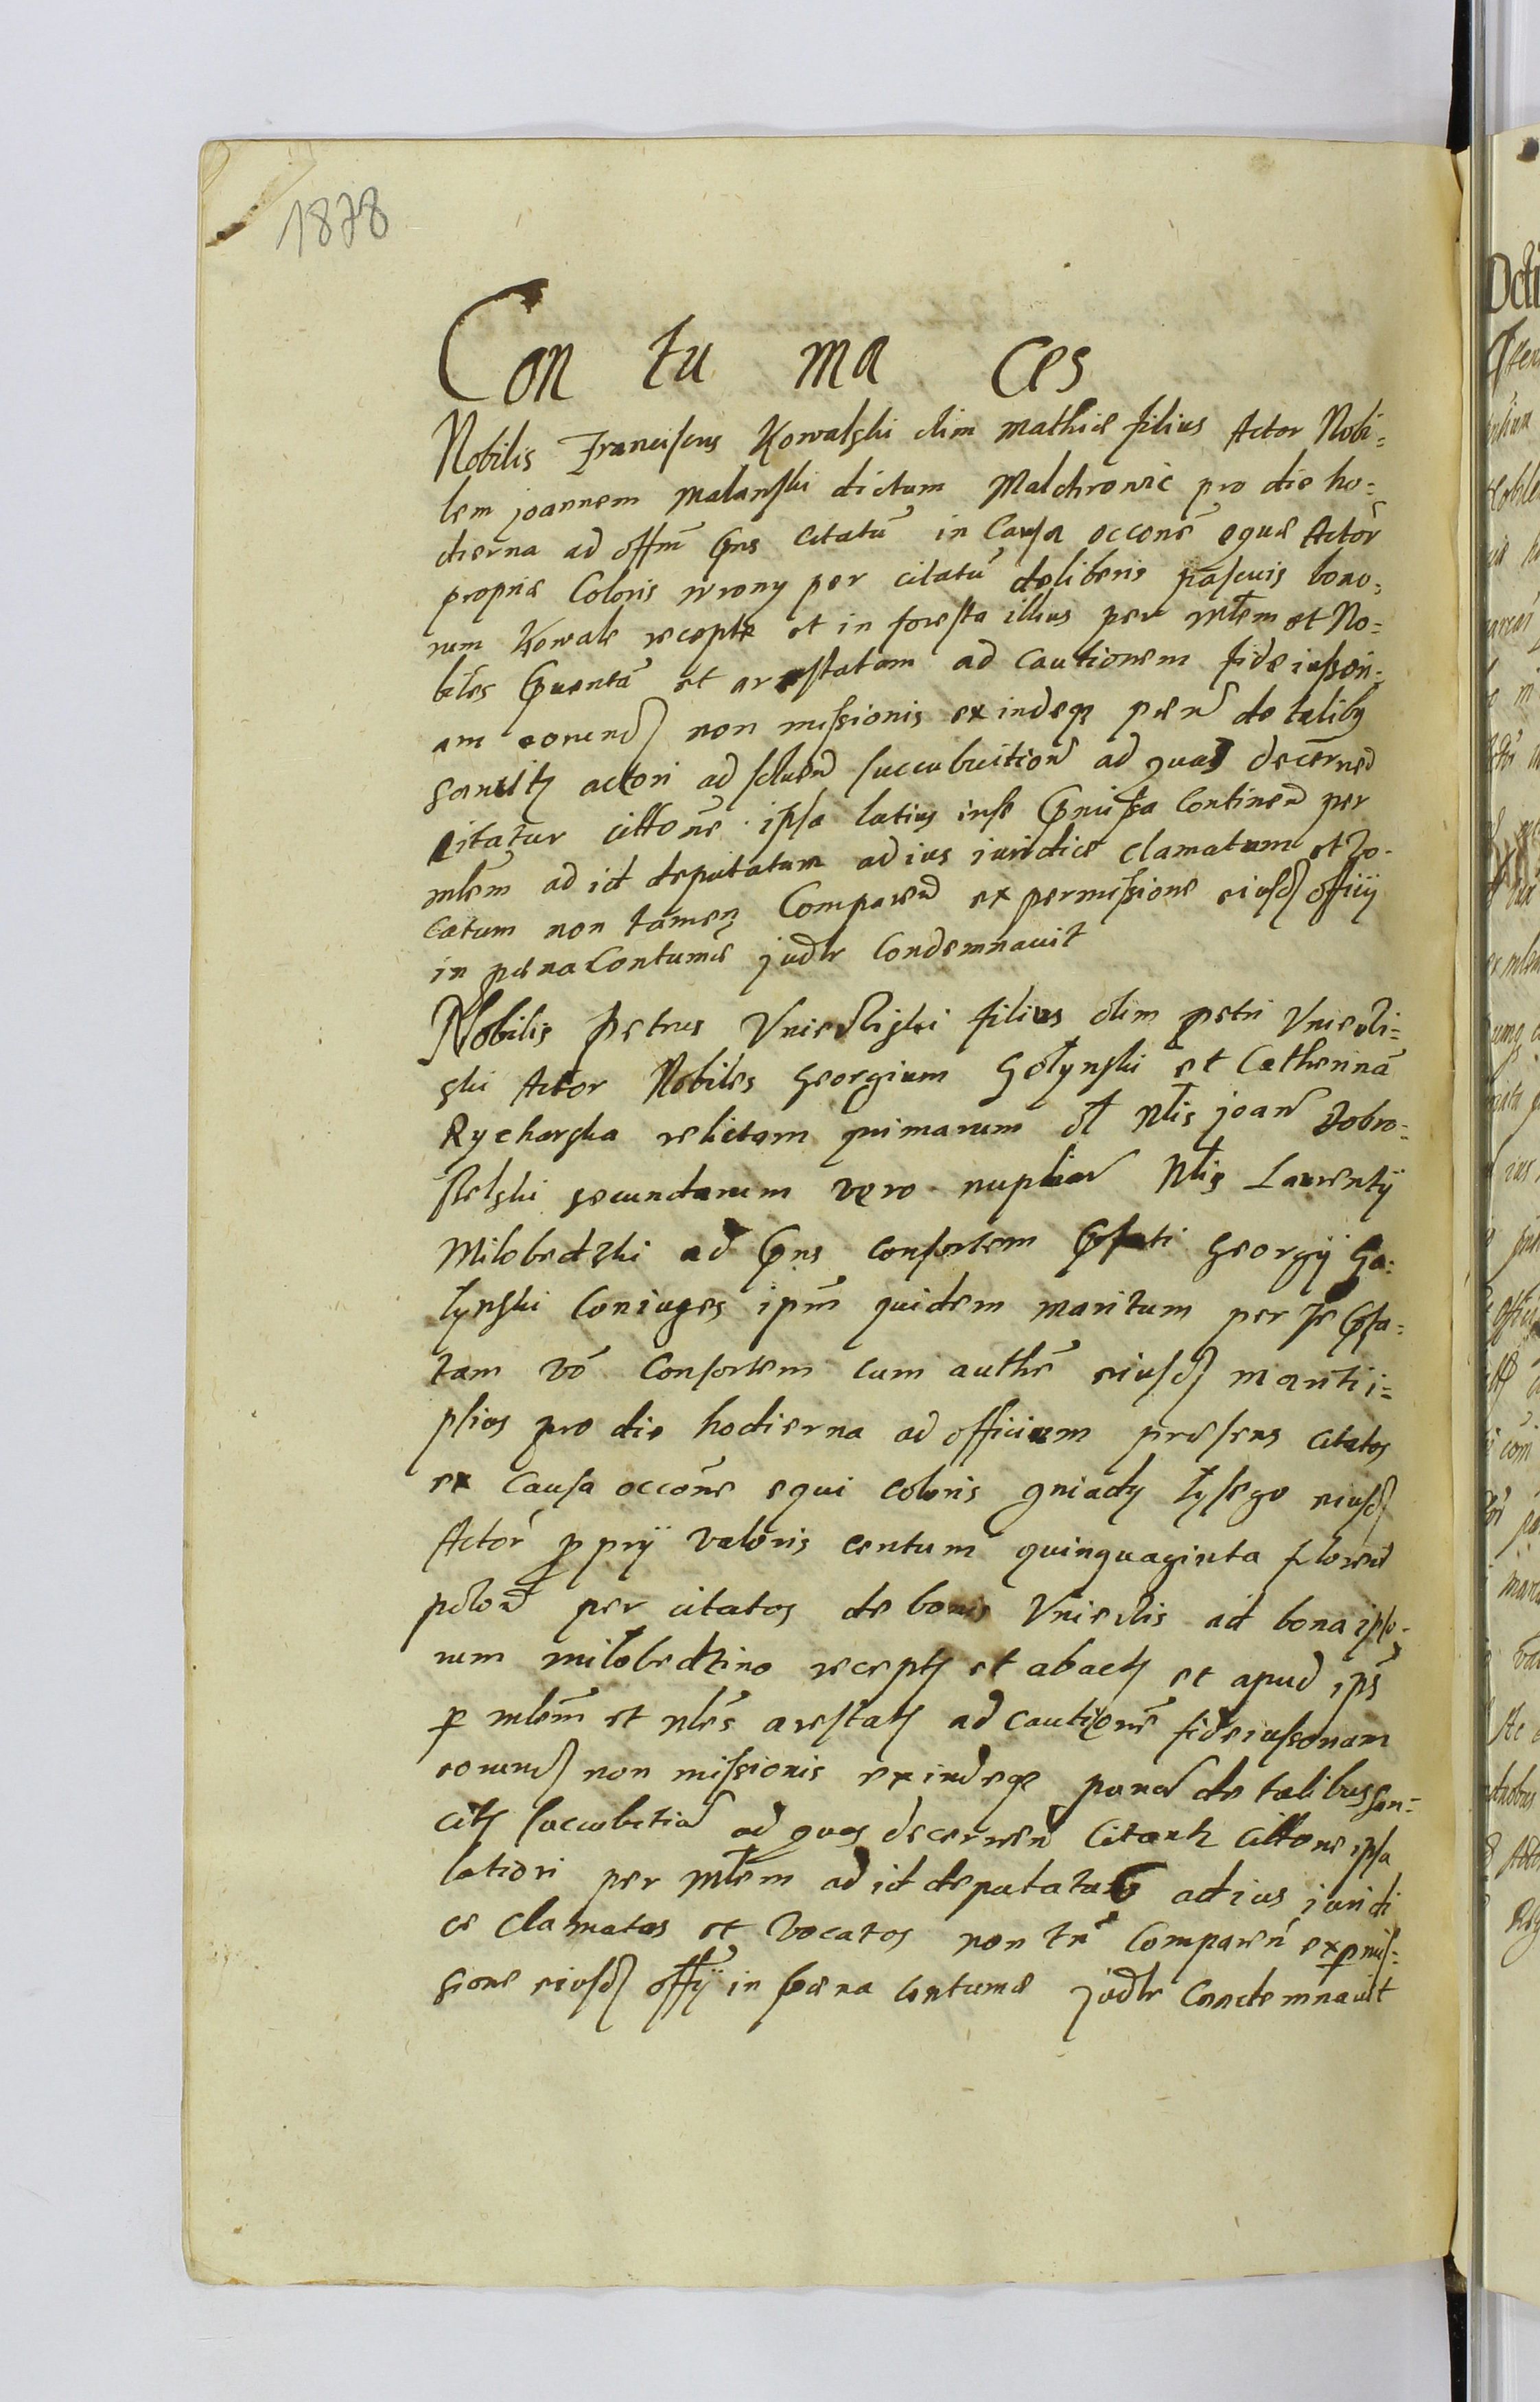 1878
Con tu ma ces
Nobilis Franciscus Kowalski olim Mathiæ filius Actor Nobi=
lem joannem Malanski dictum Malchrowic pro die ho=
dierna ad offm̄ p̄ns citatū in Causa occōne equæ Actor̄
propriæ Coloris wrony per citatū de liberis pascuis bono=
rum Kowale receptæ et in foresta illius per mlem et No=
biles p̄uentā et arestatam ad cautionem fideiussori=
am eorund non missionis exindeq pœn de talib
sancit actori ad soluen succubuition ad quas decernend
citatur cittōne ipsa latius in se p̄missa continen per
mlēm ad id deputatum ad ius iuridice clamatum et vo-
catum non tamen Comparen ex permissione eiusd officij
in pœna Contumæ judlr Condemnauit
Nobilis Petrus Vniedliski filius olim petri Vniedli=
ski Actor Nobiles Georgium Gołynski et Catherinā
Rycharska relictam primarum ol Nlis joan Dobro=
sielski secundarum vero nuptiar Nlis Laurentij
Miłobedzki ad p̄ns consortem p̄fati Georgij Go=
łynski Coniuges ipm̄ quidem maritum per se p̄fa=
tam vō Consortem cum authē eiusd mariti i=
psius pro die hodierna ad officium præsens citatos
ex Causa occōne equi coloris gniady łysego eiusd
Actor proprij valoris centum quinquaginta floren
polon per citatos de bonis Vniedlis ad bona ipso=
rum miłobedzino recept et abact et apud ip̄s
p mlēm et nlēs arestat ad cautionē fideiussoriam
eorund non missionis exindeq pœnar de talibus san=
cit succubition ad quas decernen Citant cittone ipsa
latiori per mlem ad id deputatum ad ius iuridi
ce clamatos et vocatos non tn̄ Comparen ex p̱mis=
sione eiusd offij in pœna contumæ judlr Condemnauit